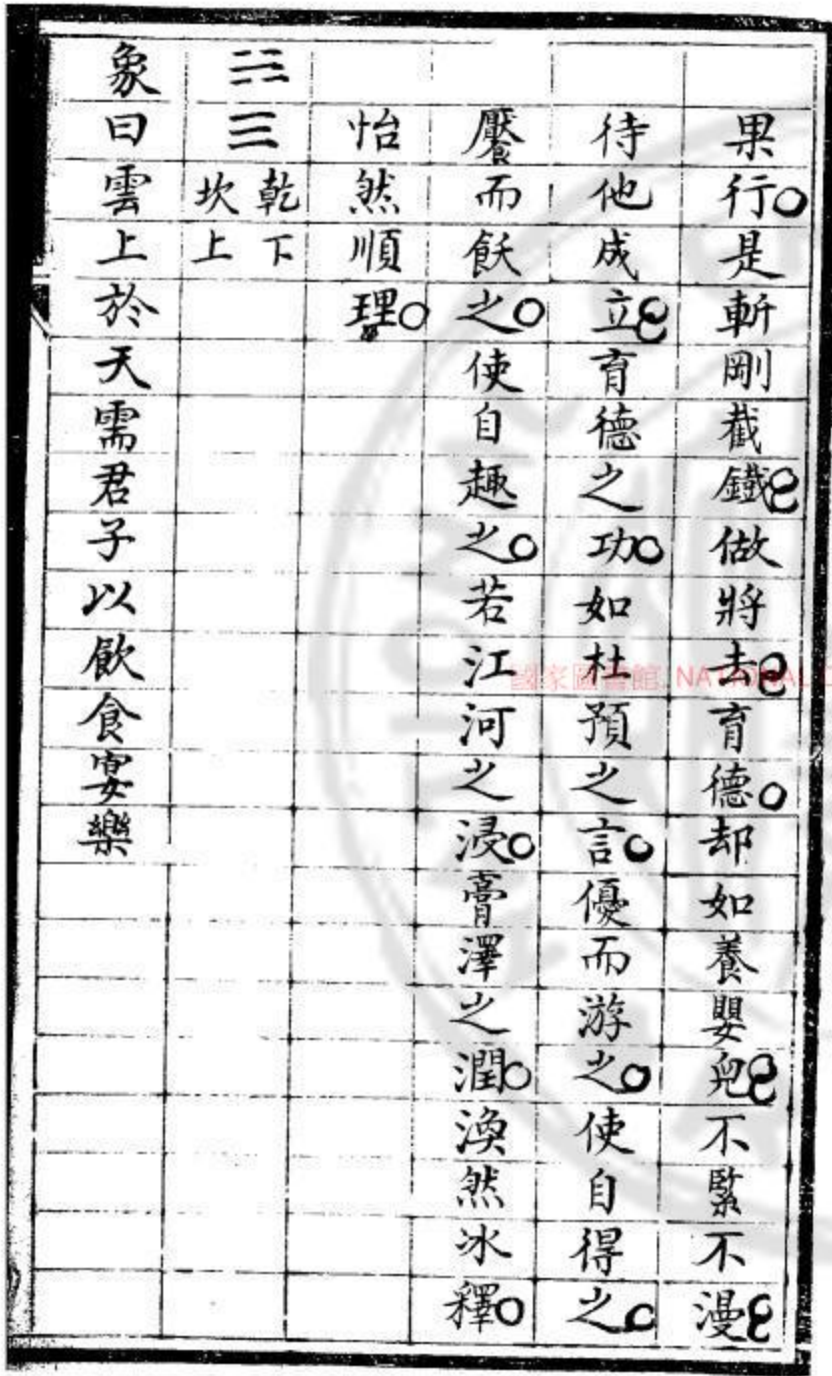 果行是斬剛截鐵做將去育德却如養嬰兒不緊不漫
待他成立育德之功如杜預之言優而游之使自得之
饜而飫之使自趣之若江河之浸膏澤之潤渙然冰釋
怡然順理
☵☰乾下坎上
象曰雲上於天需君子以飲食宴樂
國家圖書館 NATIONAL C